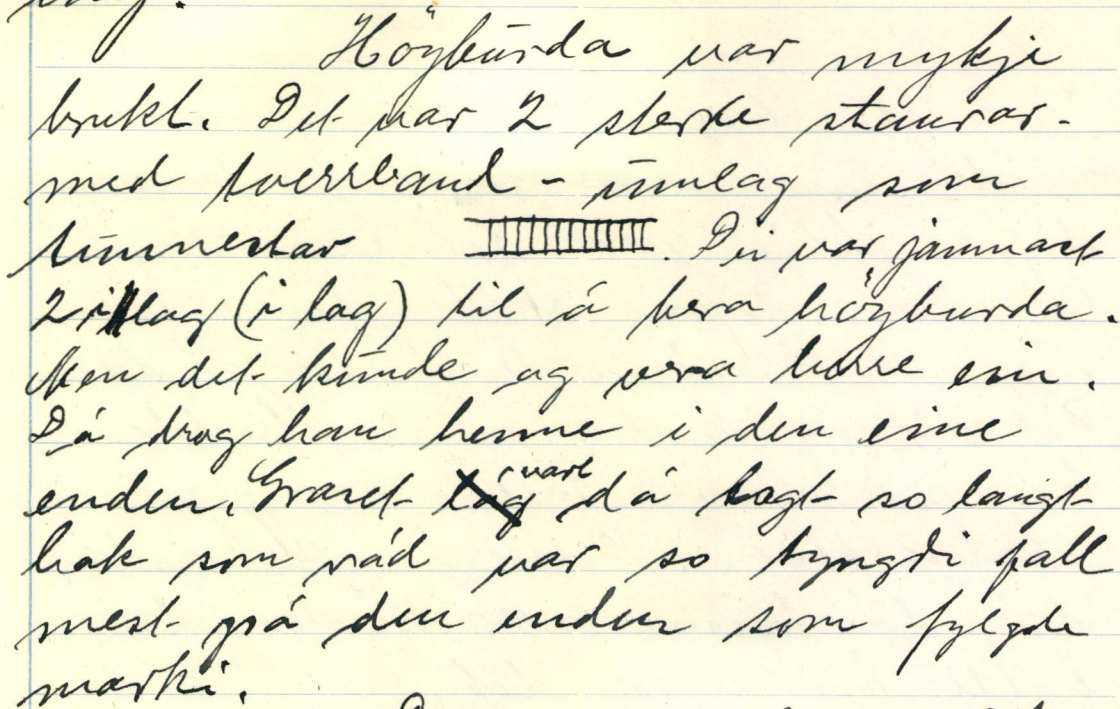 Höyburda var mykje
brukt. Det var 2 sterke staurar -
med tverrband - innlag som
tinnestar . Dei var jamnast
2 i lag (i lag) til å bera höyburda.
Men det kunde og vera berre ein.
Då drog han henne i den eine
enden. Graset vart då lagt so langt
bak som råd var so tyngdi fall
mest på den enden som fylgde
marki.